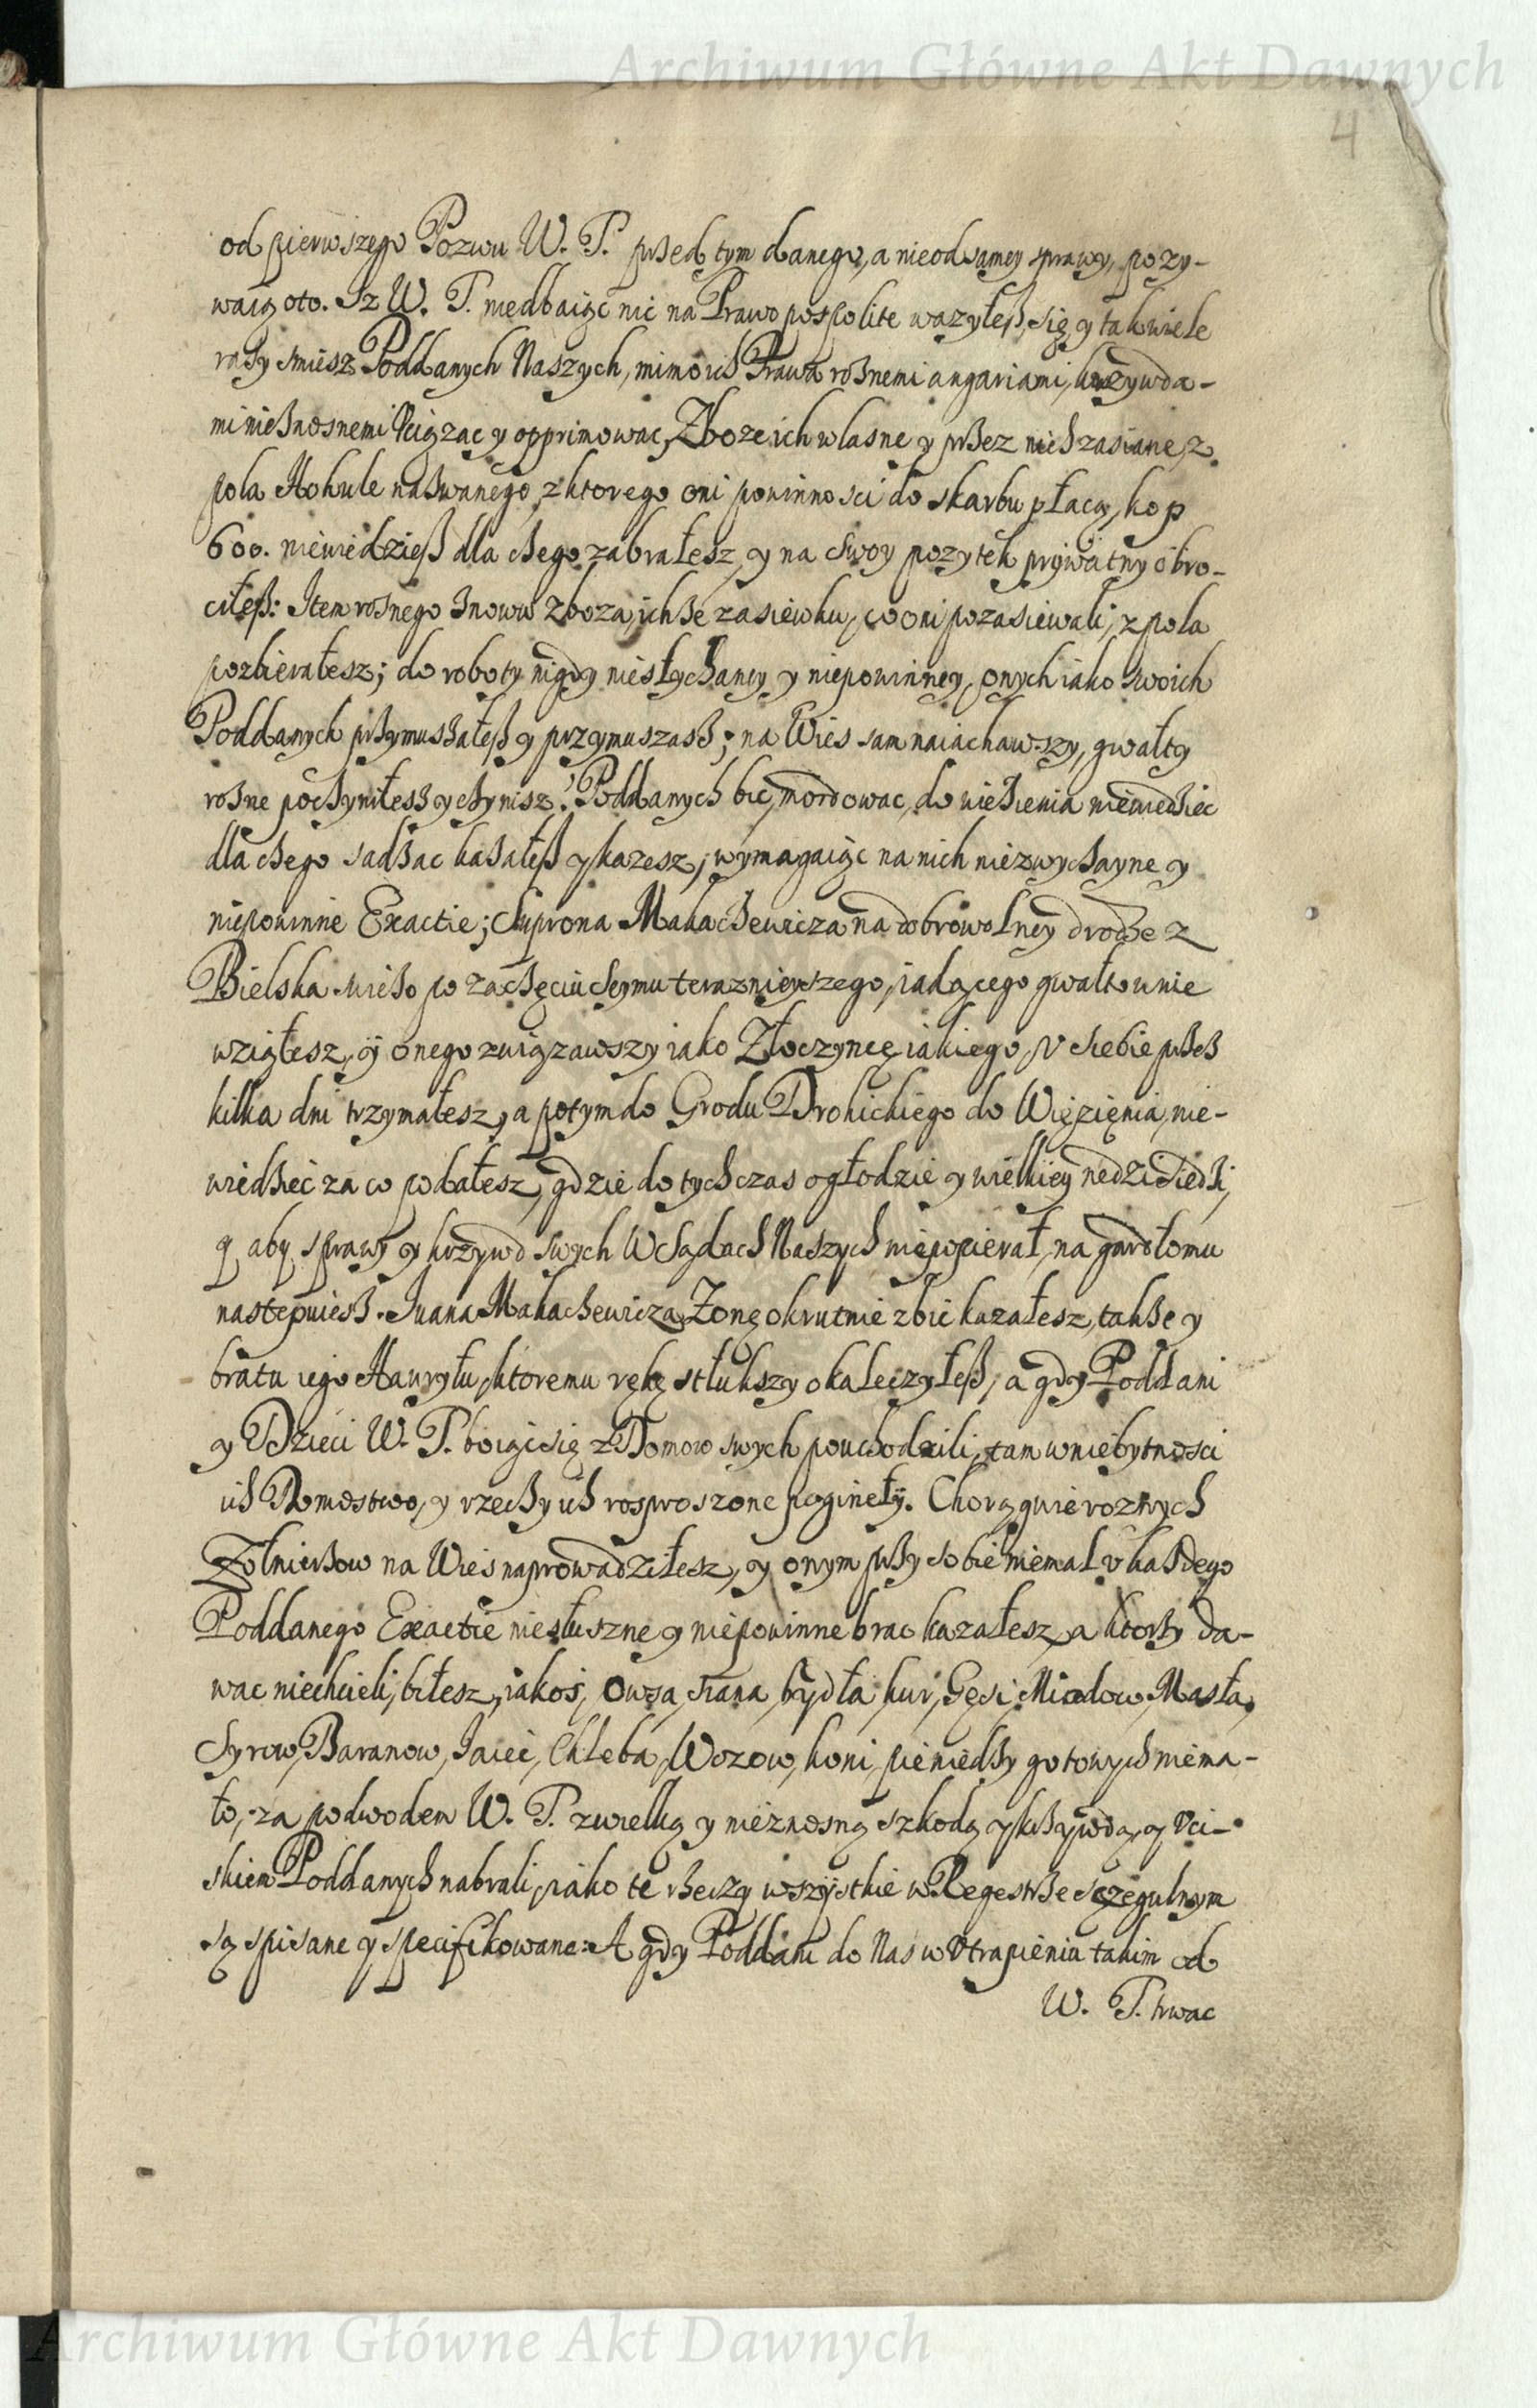 Archiwum Główne Akt Dawnych
4
od pierwszego Pozwu W. T. przed tym danego, a nieodsamey sprawy, pozy-
waią oto. Iz W. T. niedbaiąc nic na Prawo pospolite wazyłeß się y takwiele
razy smiesz Poddanych Naszych, mimo ich Prawa roznemi angariami, krzywda-
mi nieznosnemi Vciązac y opprimowac, Zboze ich wlasne y przez nich zasiane, z
pola Hohule nazwanego, z ktorego oni powinnosci do skarbu płacą, kop
600. niewiedzieß dla czego zabrałesz, y na swoy pozytek prywatny obro-
ciłeß: Item roznego znowu zboza, ichze zasiewku, co oni pozasiewali, z pola
pozbierałesz; do roboty nigdy niesłychaney y niepowinney, onych iako swoich
Poddanych przymuszałeß y przymuszasz; na Wies sam naiachawszy, gwałty
rozne poczyniłesz y czynisz: Poddanych bic, mordowac, do wiezienia niewiedziec
dla czego sadzac kazałeß y kazesz; wymagaiąc na nich niezwyczayne y
niepowinne Exactie; Suprona Makaczewicza na dobrowolney drodze z
Bielska swiezo po zaczęciu Seymu terazniejszego, iadącego gwałtownie
wziąłesz, ÿ onego związawszy iako Złoczyncę iakiego, v siebie przez
kilka dni trzymałesz, a potym do Grodu Drohickiego do Więzięnia, nie-
wiedziec za co podałesz, gdzie do tych czas o głodzie y wielkiey nedzi siedzi,
y aby sprawy y krzywd swych W Sądach Naszych niepopierał, na gardło mu
nastepuiesz. Iwana Makaczewicza Zonę okrutnie zbic kazałesz, takze y
bratu iego Hawryłu, ktoremu rękę stłukszy okaleczyłeß, a gdy Poddani
y Dzieci W. T. boiąc się z Domow swych pouchodzili, tam w niebytnosci
ich Domostwo, y rzeczy ich rosproszone poginełÿ. Chorągwie roznych
Zołnierzow na Wies naprowadziłesz, y onym przy sobie niemal v kazdego
Poddanego Exactie niesłuszne y niepowinne brac kazałesz, a ktorzy da-
wac niechcieli, biłesz, iakoż, Owsa, siana, bydła, kur, Gęsi, Miodow, Masła,
Syrow, Baranow, Iaiec, Chleba, Wozow, koni, pieniedzy gotowych niema-
ło, za podwodem W. T. z wielką y nieznosną szkodą, y krzywdą, y Vci-
skiem Poddanych nabrali, iako te rzeczy wszÿstkie w Regestrze sczegulnym
są spisane y specifikowane: A gdy Poddani do Nas w Vtrapieniu takim od
W. T. trwac
Archiwum Główne Akt Dawnych